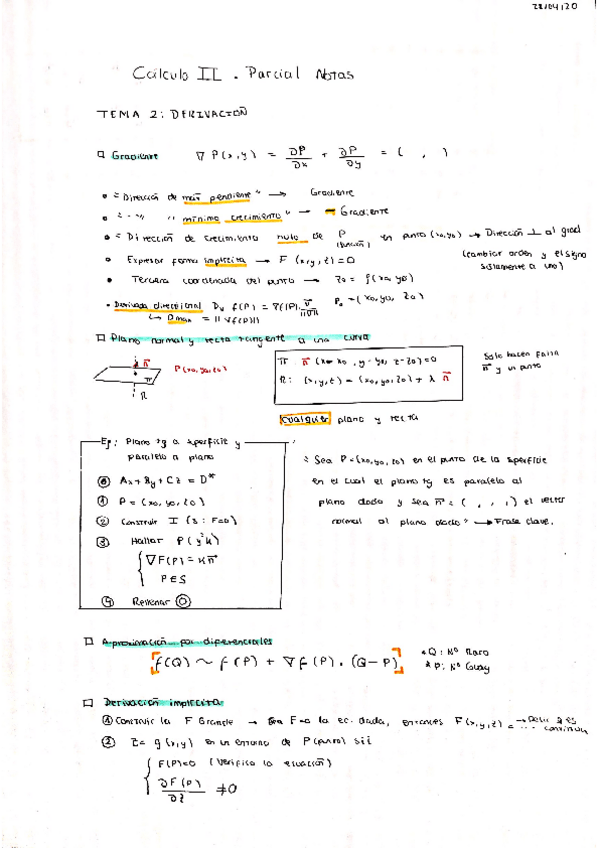 22/04/20
Cálculo II . Parcial Notas
TEMA 2: DERIVACIÓN
Gradiente ∇ P(x,y) = ∂P/∂x + ∂P/∂y = ( , )
"Dirección de max pendiente" → Gradiente
" - " " mínimo crecimiento" → - Gradiente
"Dirección de crecimiento nulo de P (función) en punto (x0,y0) → Dirección ⊥ al grad
(cambiar orden y el signo solamente a uno)
Expresar forma implícita → F (x,y,z) = 0
Tercera coordenada del punto → z0 = f(x0,y0)
Derivada direccional Dv f(P) = ∇f(P)· v/||v|| P0 = (x0, y0, z0)
↳ Dmax = ||∇f(P)||
Plano normal y recta tangente a una curva
n
π
R
P(x0,y0,z0)
π n (x-x0, y-y0, z-z0) = 0
R: (x,y,z) = (x0,y0,z0) + λ n
Solo hacen falta n y un punto
Cualquier plano y recta
Ej: Plano tg a superficie y
paralelo a plano
⓪ Ax + By + Cz = D*
① P = (x0, y0, z0)
② Construir I (S: F=0)
③ Hallar P (y K)
∇F(P) = K n
P∈S
④ Rellenar ⓪
"Sea P=(x0,y0,z0) en el punto de la superficie
en el cual el plano tg es paralelo al
plano dado y sea n = ( , , ) el vector
normal al plano dado" → Frase clave.
Aproximación por diferenciales
f(Q) ~ f(P) + ∇f(P) · (Q-P)
* Q: Nº Raro
* P: Nº Guay
Derivación implícita
① Construir la F Grande → Sea F=0 la ec. dada, entonces F(x,y,z) = ... continua
② z = g(x,y) en un entorno de P(punto) sii
F(P)=0 (Verifica la ecuación)
∂F(P)/∂z ≠ 0